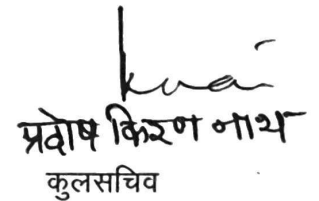 प्रदोष किरण नाथ
कुलसचिव